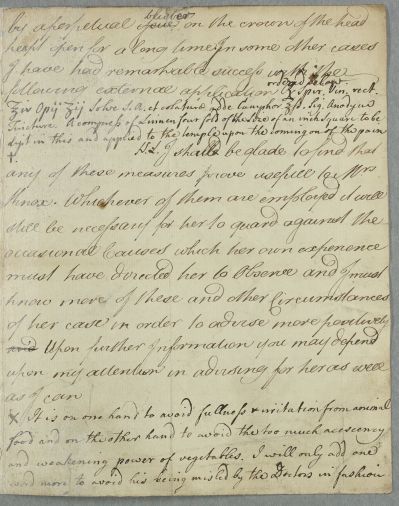 blister
by a perpetual issue on the crown of the head
kept open for a long time. In some other cases
I have had remarkable success with the
ordered below
following external application ℞ Spir. Vin. rect.
℥iv Opij ʒij Solve S.A. et colaturæ adde Camphor ʒß. Sig. Anodyne
Tincture. A compress of Linnen four fold of the Size of an inch Square to be
dipt in this and applied to the temple upon the coming on of the pain
I shall be glade to find that
any of these measures prove usefull to Mrs
Knox. Whichever of them are employed it will
still be necessary for her to guard against the
occasional Causes which her own experience
must have directed her to Observe and I must
know more of these and other Circumstances
of her case in order to advise more positively
and Upon further Information you may depend
upon my attention in advising for her as well
as I can
X. It is on one hand to avoid fullness & irritation from animal
food and on the other hand to avoid the too much acescency
and weakening power of vegetables. I will only add one
word more to avoid his being misled by the Doctors in fashion